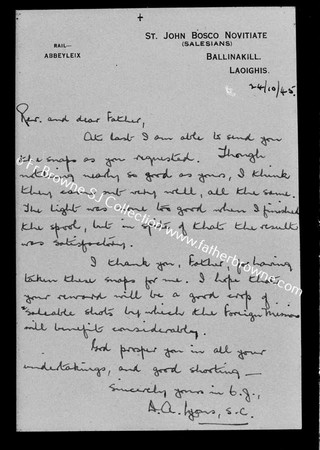 St. John Bosco Novitiate
(Salesians)
Rail—
Abbeyleix
Ballinakill.
Laoighis.
24/10/45.
Rev. and dear Father,
At last I am able to send you
the snaps as you requested. Though
nothing nearly so good as yours, I think
they came out very well, all the same.
The light was none too good when I finished
the spool, but in spite of that the result
was satisfactory.
I thank you, Father, for having
taken these snaps for me. I hope that
your reward will be a good crop of
saleable shots by which the Foreign Missions
will benefit considerably.
God prosper you in all your
undertakings, and good shooting —
Sincerely yours in C.J.,
A. A. Lyons, S.C.
Fr Browne SJ Collection www.fatherbrowne.com